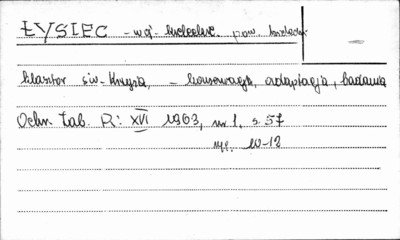 ŁYSIEC - woj. kieleckie. pow. kielecki
klasztor św. Krzyża, - konserwacja, adaptacja, badania
Ochr. Zab. R: XVI 1963, nr 1. s. 57
10-12